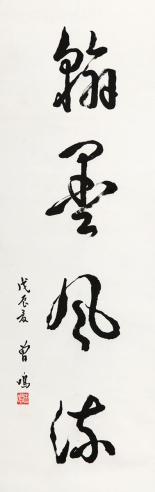 翰墨风流
戊辰夏 曾鸣